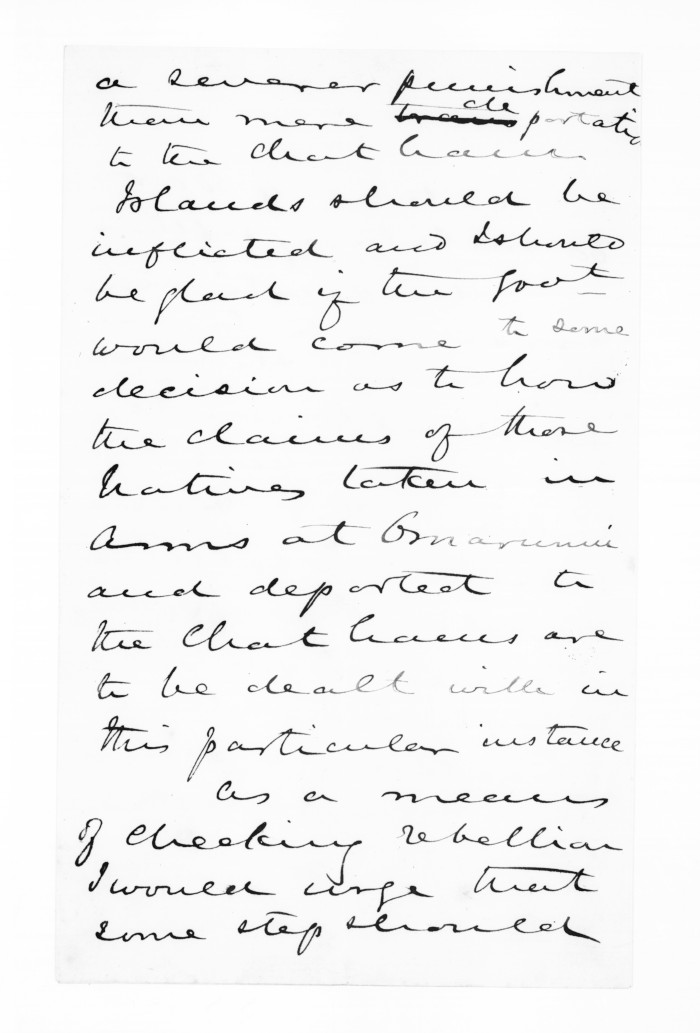 a severer punishment
than mere trans de portatio
to the Chatham
Islands should be
inflicted and I should
be glad if the Govt
would come to some
decision as to how
the claims of those
Natives taken in
arms at Omarunui
and deported to
the Chathams are
to be dealt with in
this particular instance
as a means
of checking rebellion
I would urge that
some step should